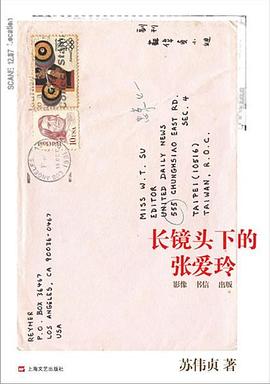 副刊
蘇偉貞小姐
LOS ANGELES
MISS W. T. SU
EDITOR
UNITED DAILY NEWS
555 CHUNGHSIAO EAST RD.
SEC. 4
TAIPEI (10516)
TAIWAN, R.O.C.
REYHER
P.O. BOX 36467
LOS ANGELES, CA 90036-0467
USA
长镜头下的
张爱玲
影像 书信 出版
苏伟贞 著
上海文艺出版社